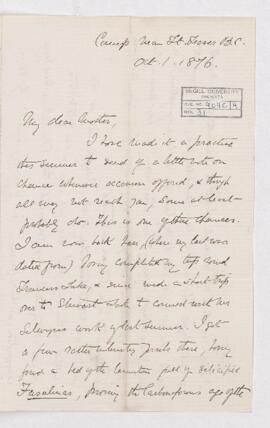 Camp Near Ft. Fraser B.C.
Oct. 1. 1876.
McGILL UNIVERSITY
ARCHIVES
31
My dear Mother,
I have made it a practice
this summer to send off a letter or note on
chance whenever occasion offered, & though
all may not reach you, some at least
probably do. This is one of these chances.
I am now back here (where my last was
dated from) having completed my trip round
Francois Lake, & since made a short trip
over to Stewart Lake to connect with Mr
Selwyns work of last summer. I got
a few rather interesting fossils there, having
found a bed of the limestone full of silicified
Fusulinas, proving the Carboniferous age of the